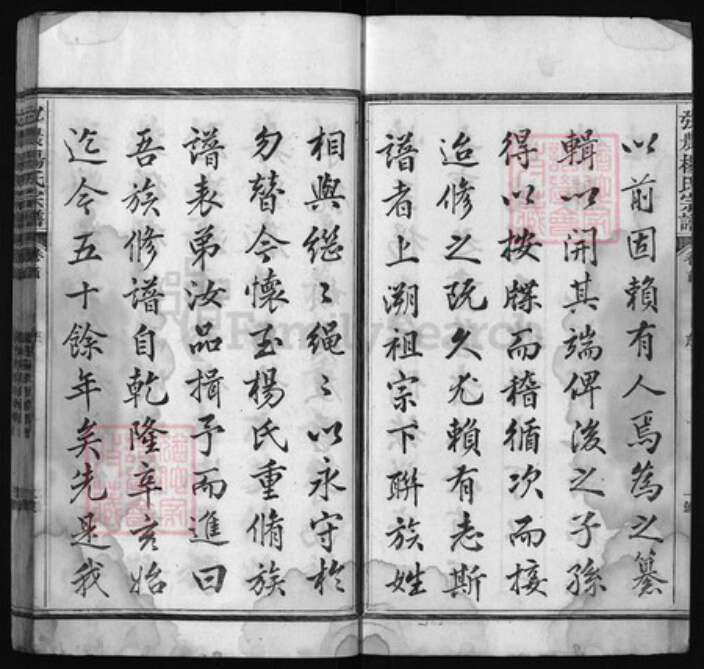 以前固賴有人焉為之纂
輯以開其端俾後之子孫
得以按牒而稽循次而接
迨修之既久尤賴有志斯
譜者上溯祖宗下聯族姓
相與繼〻繩〻以永守於
勿替今懷玉楊氏重脩族
譜表弟汝品揖予而進曰
吾族修譜自乾隆辛亥始
迄今五十餘年矣先是我
楊氏宗譜
FamilySearch